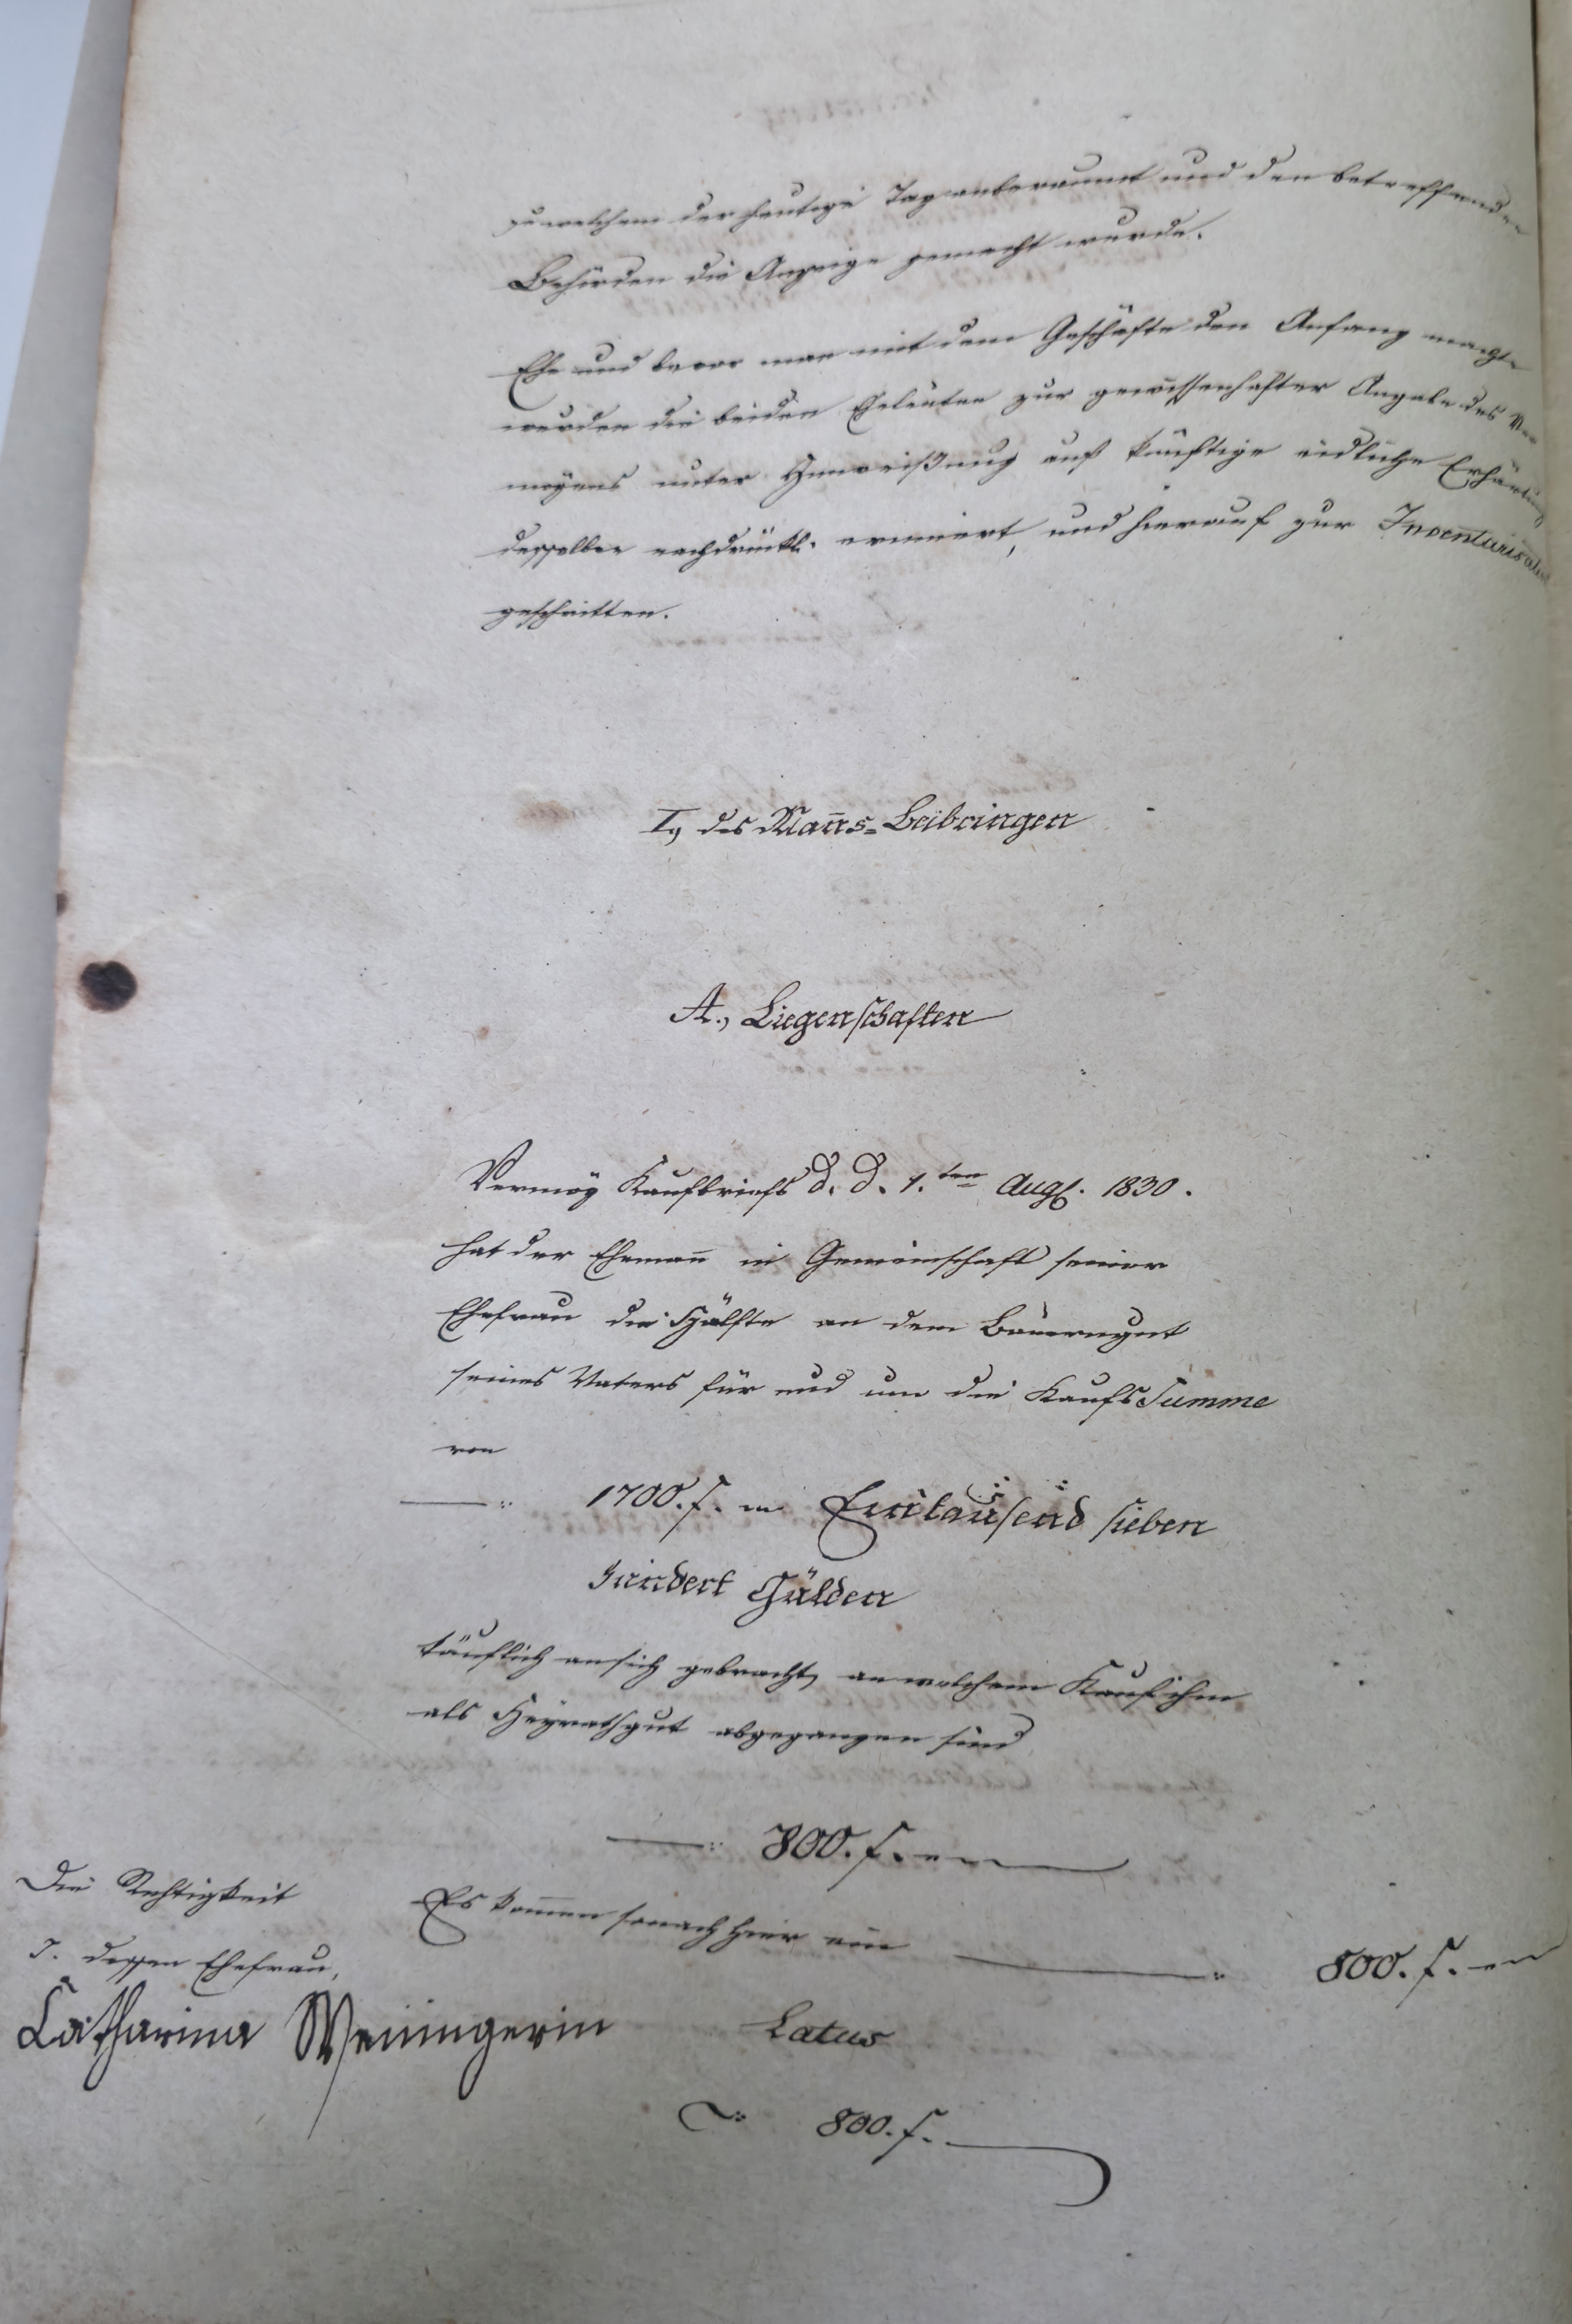 zu welchem der heutige Tag anberaumt und den betreffenden
Behörden die Anzeige gemacht wurde.
Ehe und bevor man mit dem Geschäfte den Anfang machte
wurden die beiden Eheleuten zur gewissenhafter Angabe des Ver
mögens unter Hinweißung auf künftige eidliche Erhärtung
desselben nachdrückl. erinnert, und hierauf zur Inventarisation
geschritten.
I, des Man̄s=Beibringen
A., Liegenschaften
Vermög Kaufbriefs d. d. 1.ten Augl. 1830.
hat der Eheman̄ in Gemeinschaft seiner
Ehefrau die Hälfte an dem Bauerngut
seines Vaters für und um die Kaufs Summe
von
1700. f. Eintausend sieben
hundert Gulden
käuflich an sich gebracht, an welchem Kauf ihm
als Heyrathgut abgegangen sind
800. f.
Es kom̄en sonach hier ein 800. f.
Die Richtigkeit
T. dessen Ehefrau,
Catharina Weiningerin
Latus
800. f.